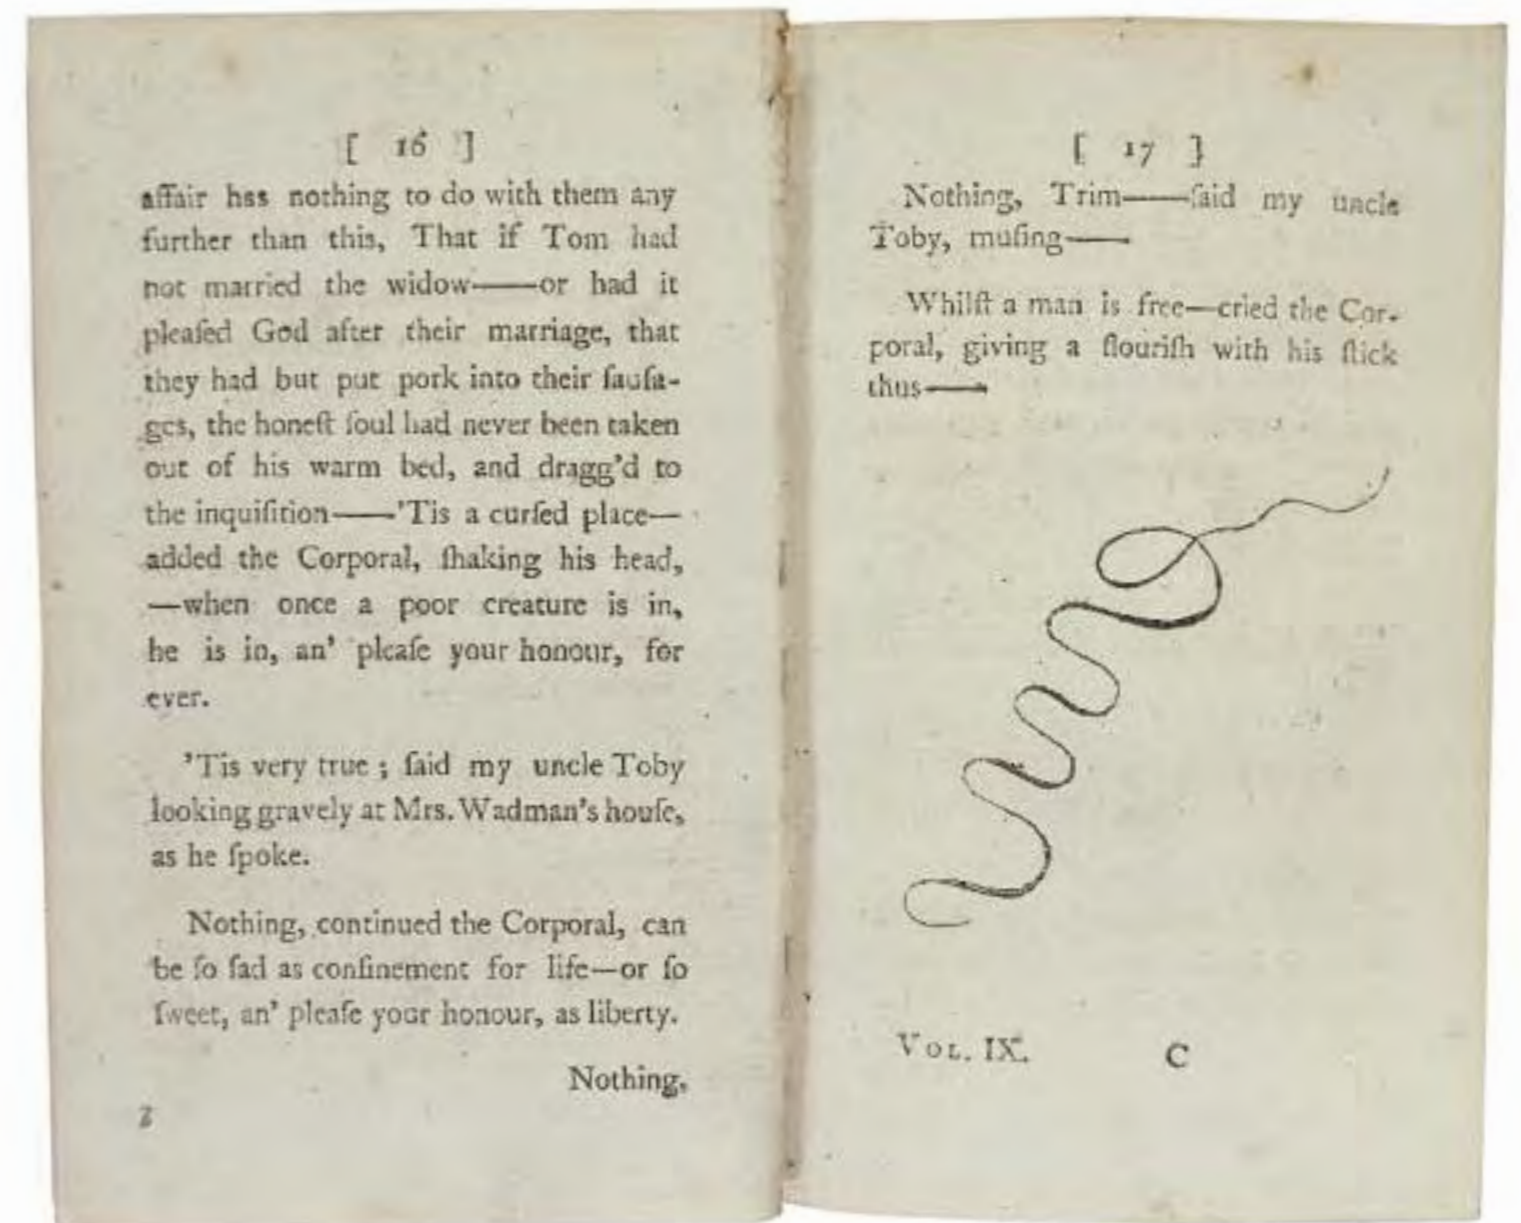 [ 16 ]
affair has nothing to do with them any
further than this, That if Tom had
not married the widow——or had it
pleaſed God after their marriage, that
they had but put pork into their ſauſa-
ges, the honeſt ſoul had never been taken
out of his warm bed, and dragg'd to
the inquiſition——'Tis a curſed place—
added the Corporal, ſhaking his head,
—when once a poor creature is in,
he is in, an' pleaſe your honour, for
ever.
'Tis very true ; ſaid my uncle Toby
looking gravely at Mrs. Wadman's houſe,
as he ſpoke.
Nothing, continued the Corporal, can
be ſo ſad as confinement for life—or ſo
ſweet, an' pleaſe your honour, as liberty.
Nothing,
2
[ 17 ]
Nothing, Trim——ſaid my uncle
Toby, muſing——
Whilſt a man is free—cried the Cor-
poral, giving a flouriſh with his ſtick
thus——
VOL. IX. C